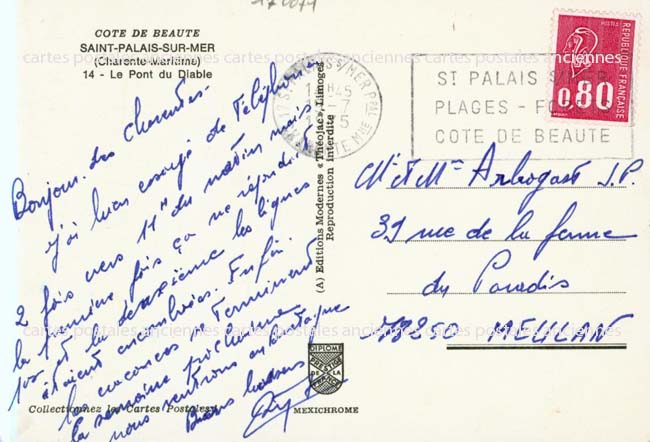 COTE DE BEAUTE
SAINT-PALAIS-SUR-MER
(Charente-Maritime)
14 - Le Pont du Diable
Bonjour des Charentes.
J'ai bien essayé de téléphoner
2 fois vers 11H du matin mais
la première fois ça ne répondit
pas et la deuxième les lignes
étaient encombrées. Enfin
les vacances se terminent
la semaine prochaine
nous rentrons en
Bons baisers
Collectionnez les Cartes Postales
(A) Editions Modernes «Théojac», Limoges
Reproduction Interdite
DIPLOME
PRESTIGE
DE LA
FRANCE
MEXICHROME
17 ST PALAIS S/MER PAL
18-45
-7
CHARENTE MME
ST PALAIS S/MER
PLAGES - FORETS
COTE DE BEAUTE
POSTES
REPUBLIQUE FRANÇAISE
0,80
M et Me Arbogast J.P.
39 rue de la ferme
du Paradis
78250 MEULAN
cartes postales anciennes cartes postales anciennes cartes postales anciennes
cartes postales anciennes cartes postales anciennes cartes postales anciennes